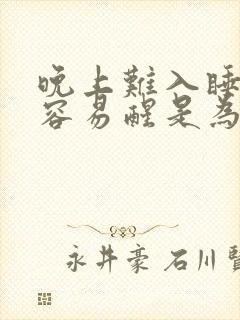 晚上難入睡
容易醒是為
永井豪 石川賢